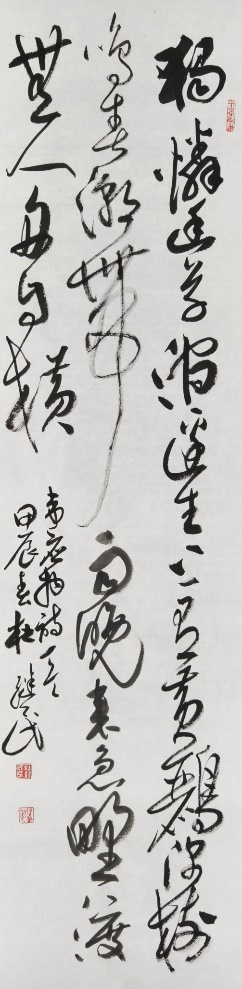 獨憐幽草澗邊生上有黃鸝深樹
鳴春潮帶雨晚來急野渡
無人舟自橫
韋應物詩一首
甲辰春杜